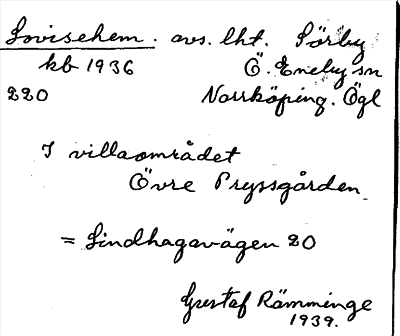 Lovisehem. avs. lht. Sörby
kb 1936 Ö. Eneby sn
220 Norrköping. Ögl
I villaområdet
Övre Pryssgården.
= Lindhagavägen 20
Gustaf Rämminge
1939.